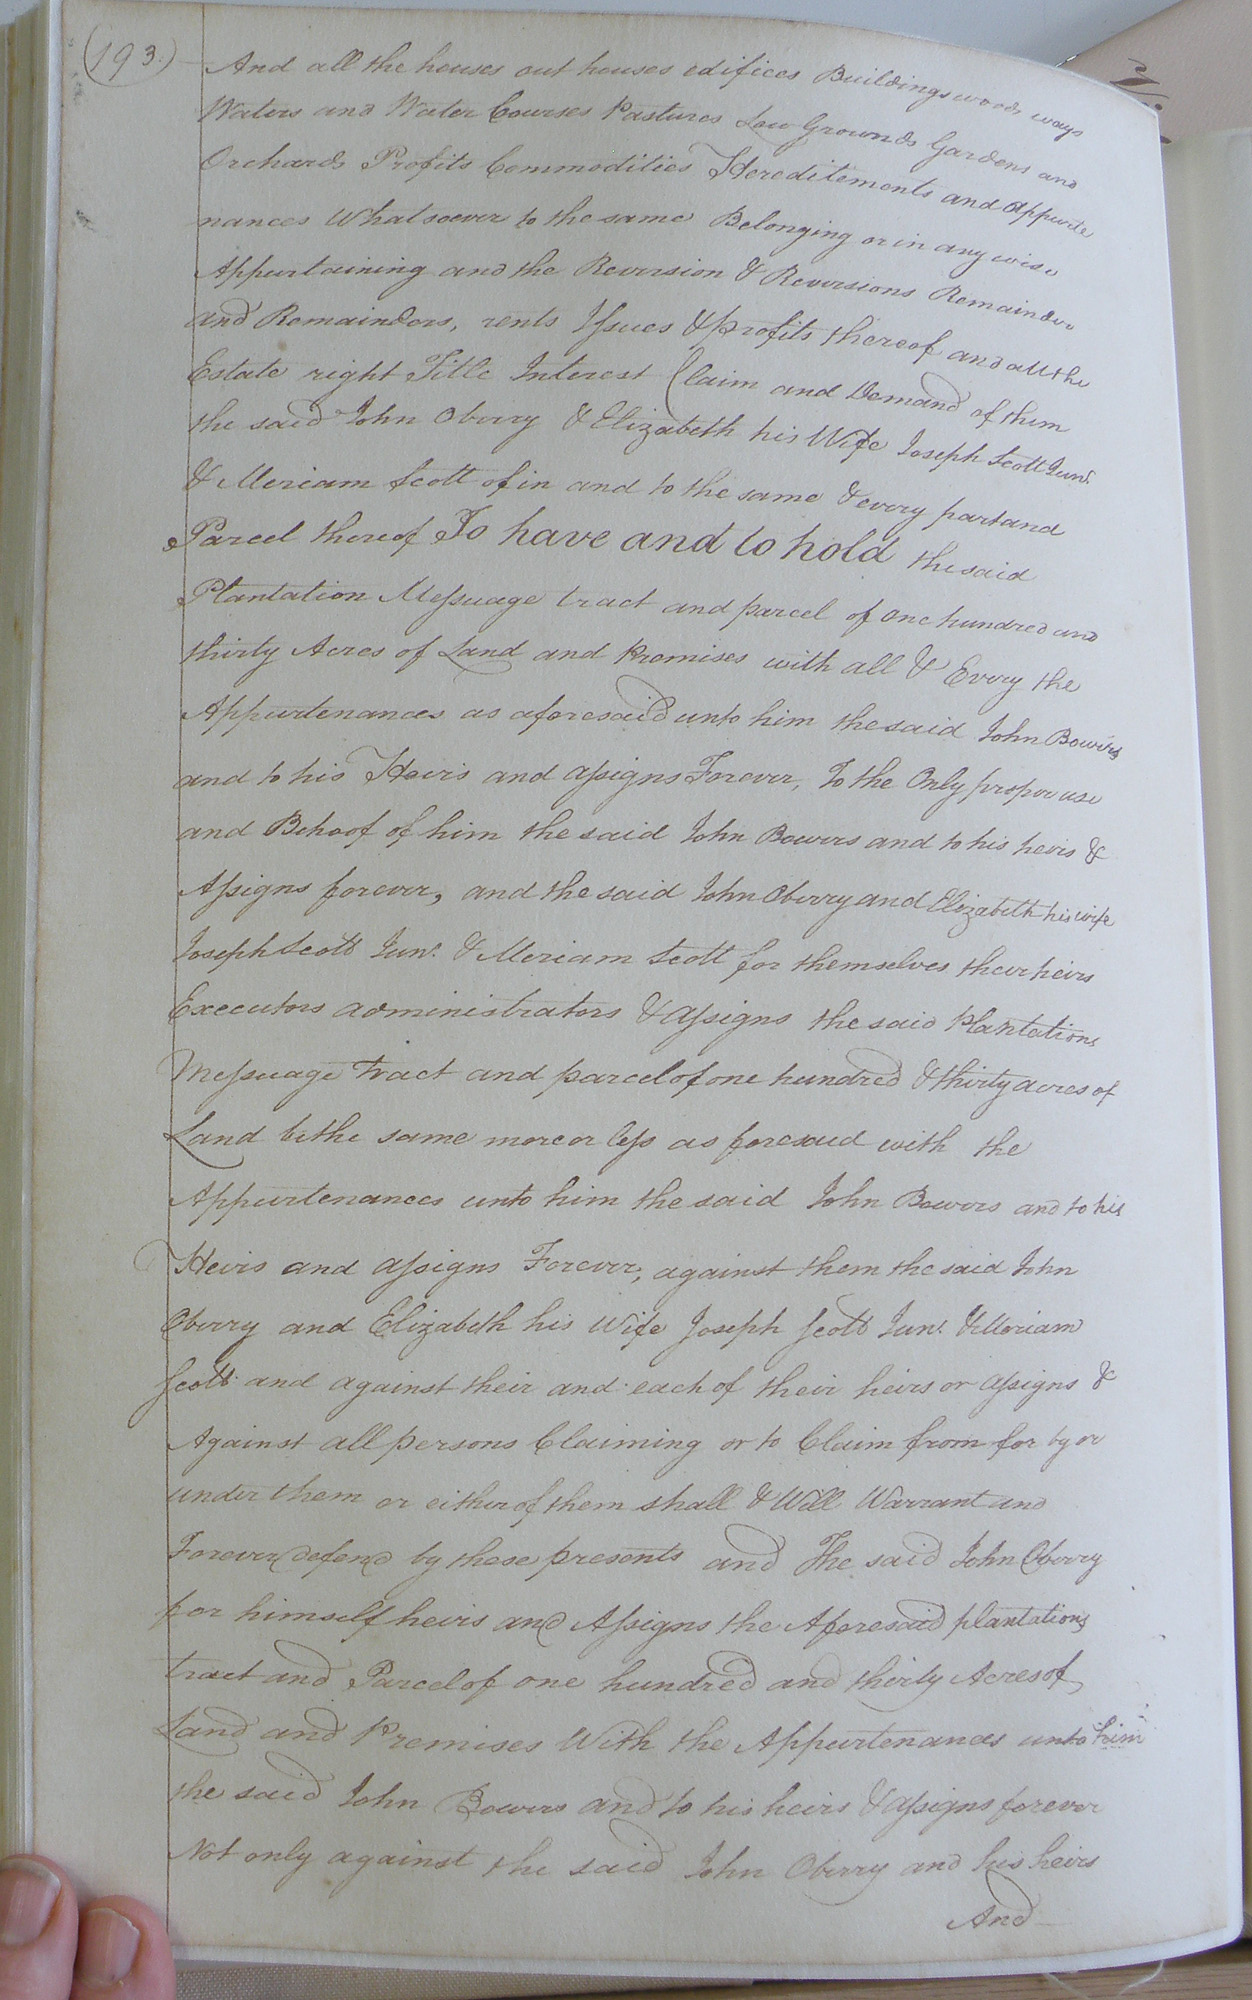 (193.)
And all the houses out houses edifices Buildings woods ways
Waters and Water Courses Pastures Low Grounds Gardens and
Orchards Profits Commodities Hereditements and Appurte
nances Whatsoever to the same Belonging or in any wise
Appurtaining and the Reversion & Reversions Remainder
and Remainders, rents Issues & profits thereof and all the
Estate right Title Interest Claim and Demand of them
the said John Oberry & Elizabeth his Wife Joseph Scott Junr.
& Meriam Scott of in and to the same & every part and
Parcel thereof To have and to hold the said
Plantation Messuage tract and parcel of One hundred and
thirty Acres of Land and Premises with all & Every the
Appurtenances as aforesaid unto him the said John Bowers
and to his Heirs and assigns Forever, To the Only proper use
and Behoof of him the said John Bowers and to his heirs &
Assigns forever, and the said John Oberry and Elizabeth his wife
Joseph Scott Junr. & Meriam Scott for themselves their heirs
Executors administrators & assigns the said Plantations
Messuage Tract and parcel of one hundred & thirty acres of
Land be the same more or less as foresaid with the
Appurtenances unto him the said John Bowers and to his
Heirs and assigns Forever, against them the said John
Oberry and Elizabeth his Wife Joseph Scott Junr. & Meriam
Scott and against their and each of their heirs or assigns &
Against all persons Claiming or to Claim from for by or
under them or either of them shall & Will Warrant and
Forever defend by these presents and The said John Oberry
for himself heirs and Assigns the Aforesaid plantations
tract and Parcel of one hundred and thirty Acres of
Land and Premises With the Appurtenances unto him
the said John Bowers and to his heirs & assigns forever
Not only against the said John Oberry and his heirs
And